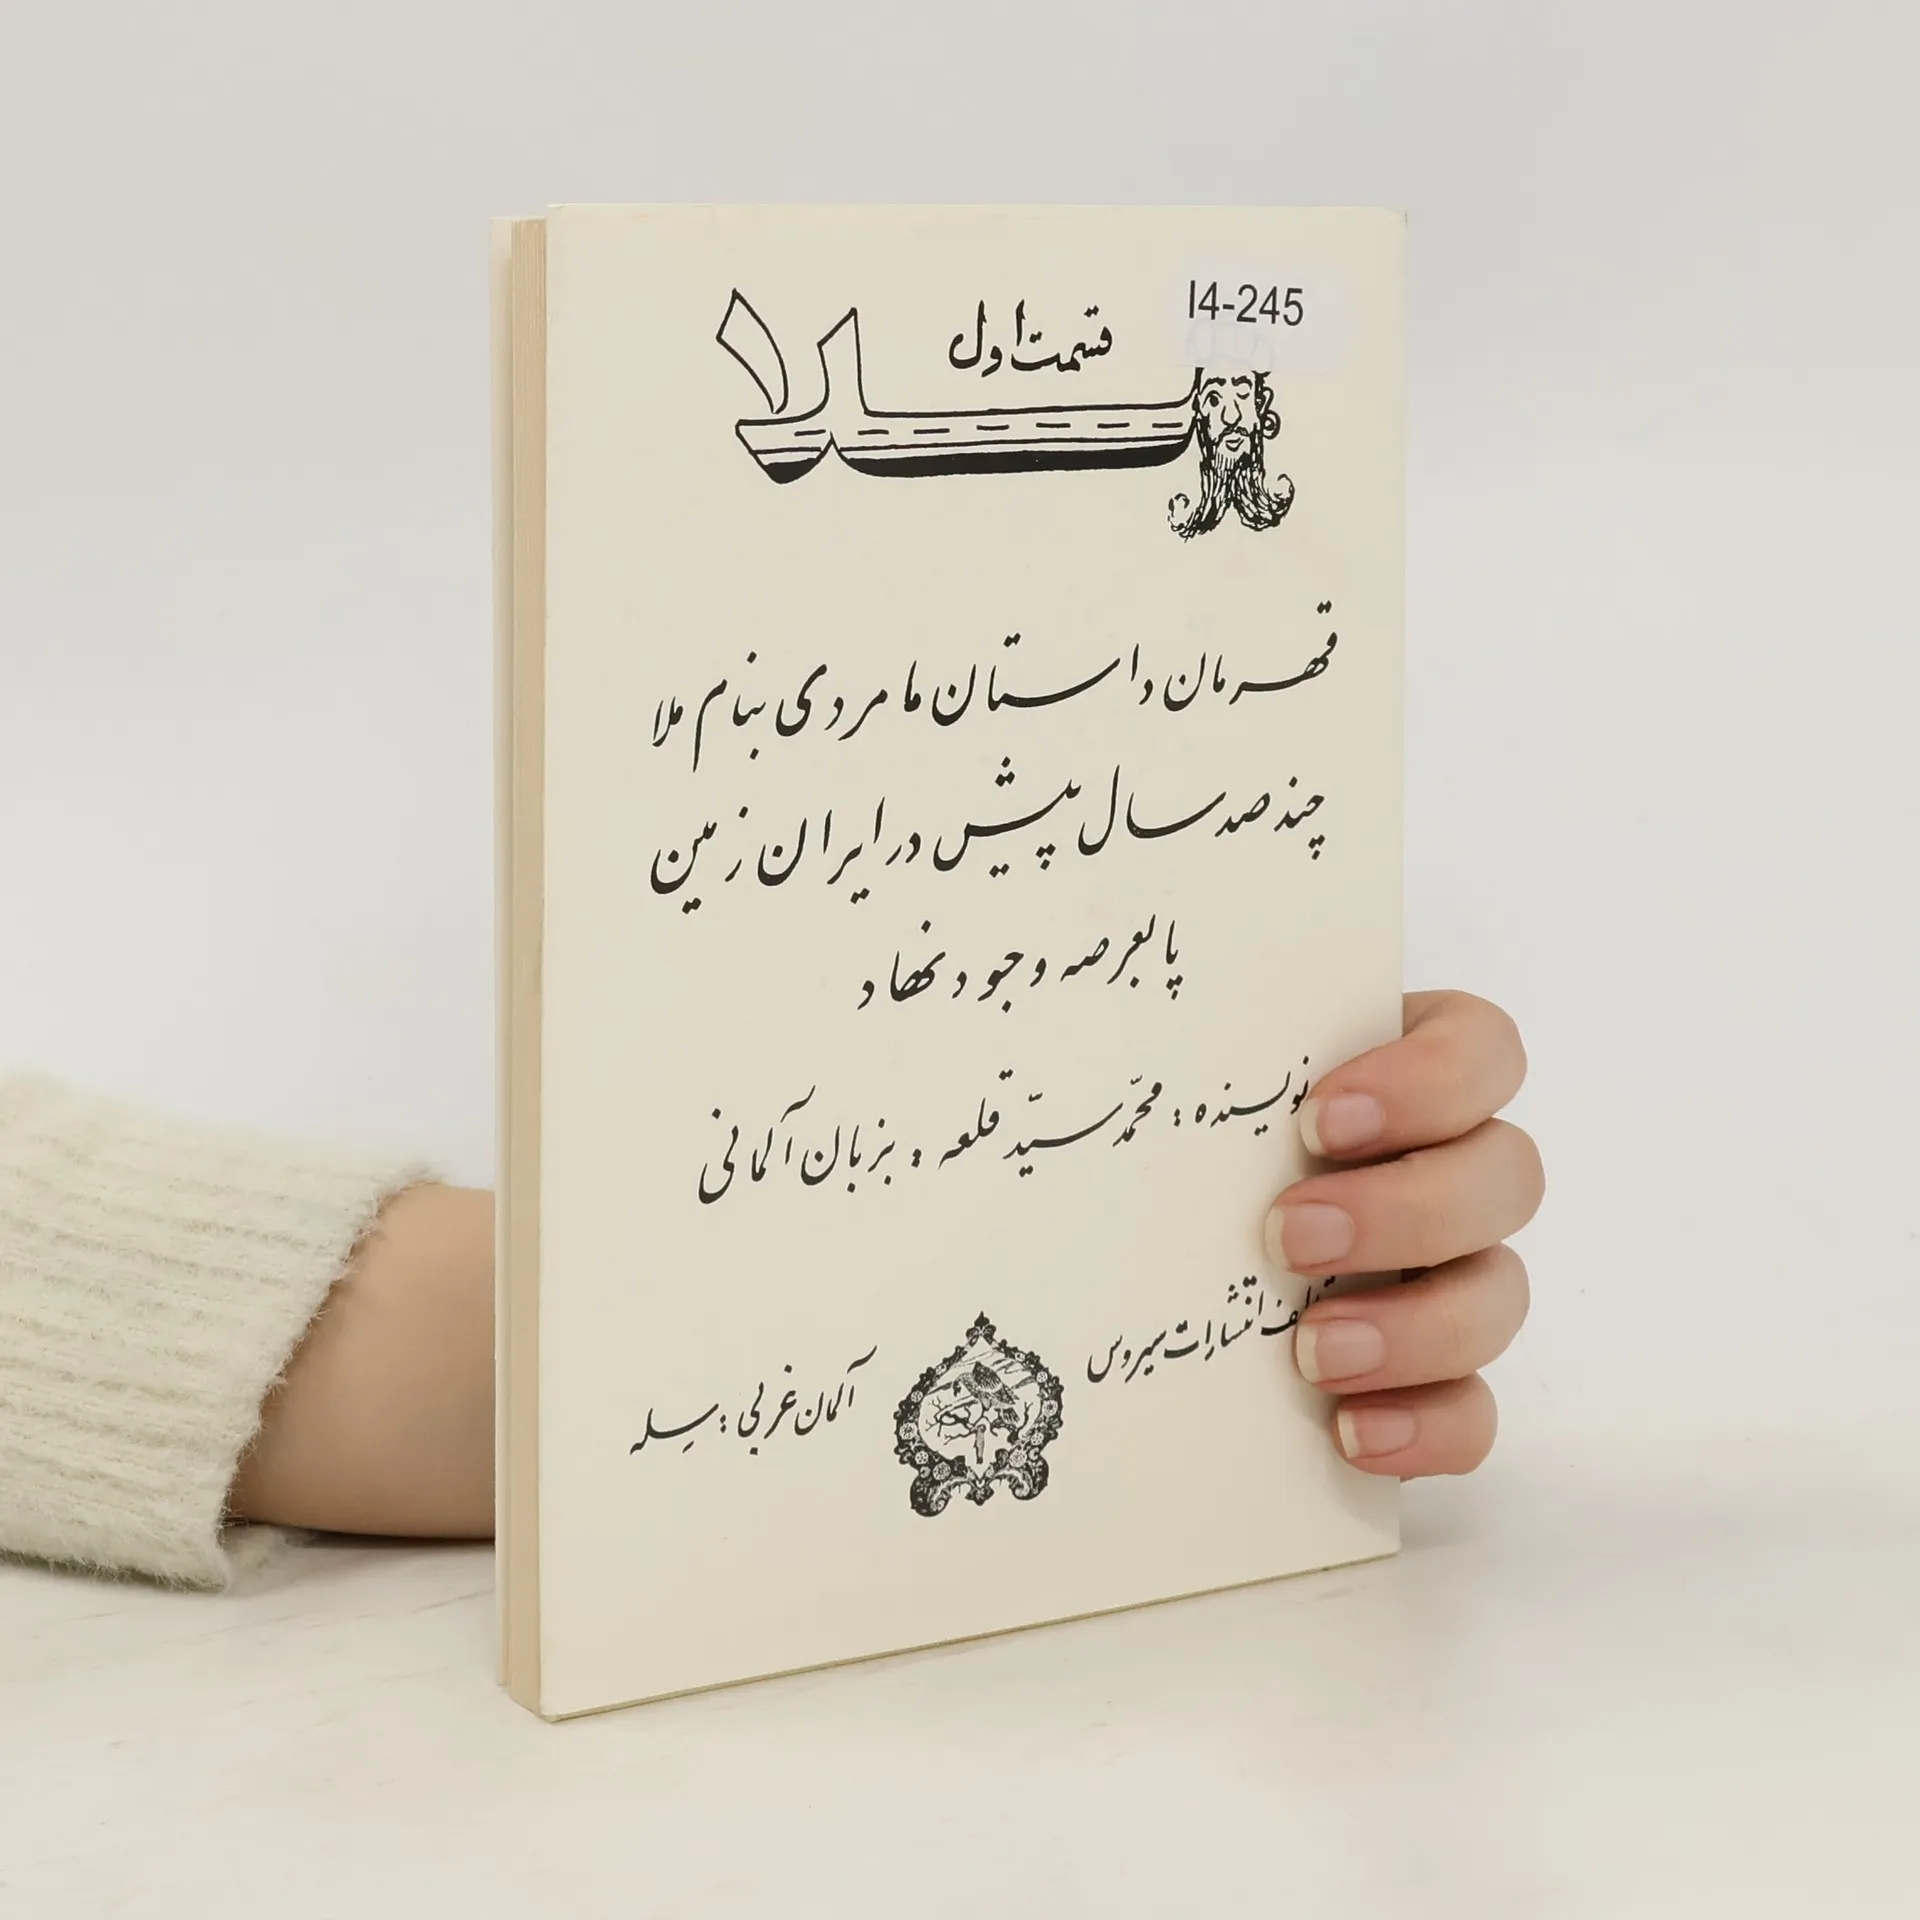 I4-245
قسمت اول
ملا
قهرمان داستان ما مردی بنام ملا
چند صد سال پیش در ایران زمین
پا بعرصه وجود نهاد
نویسنده : محمد سیّد قلعه : بزبان آلمانی
انتشارات سیروس
آلمان غربی : سِله